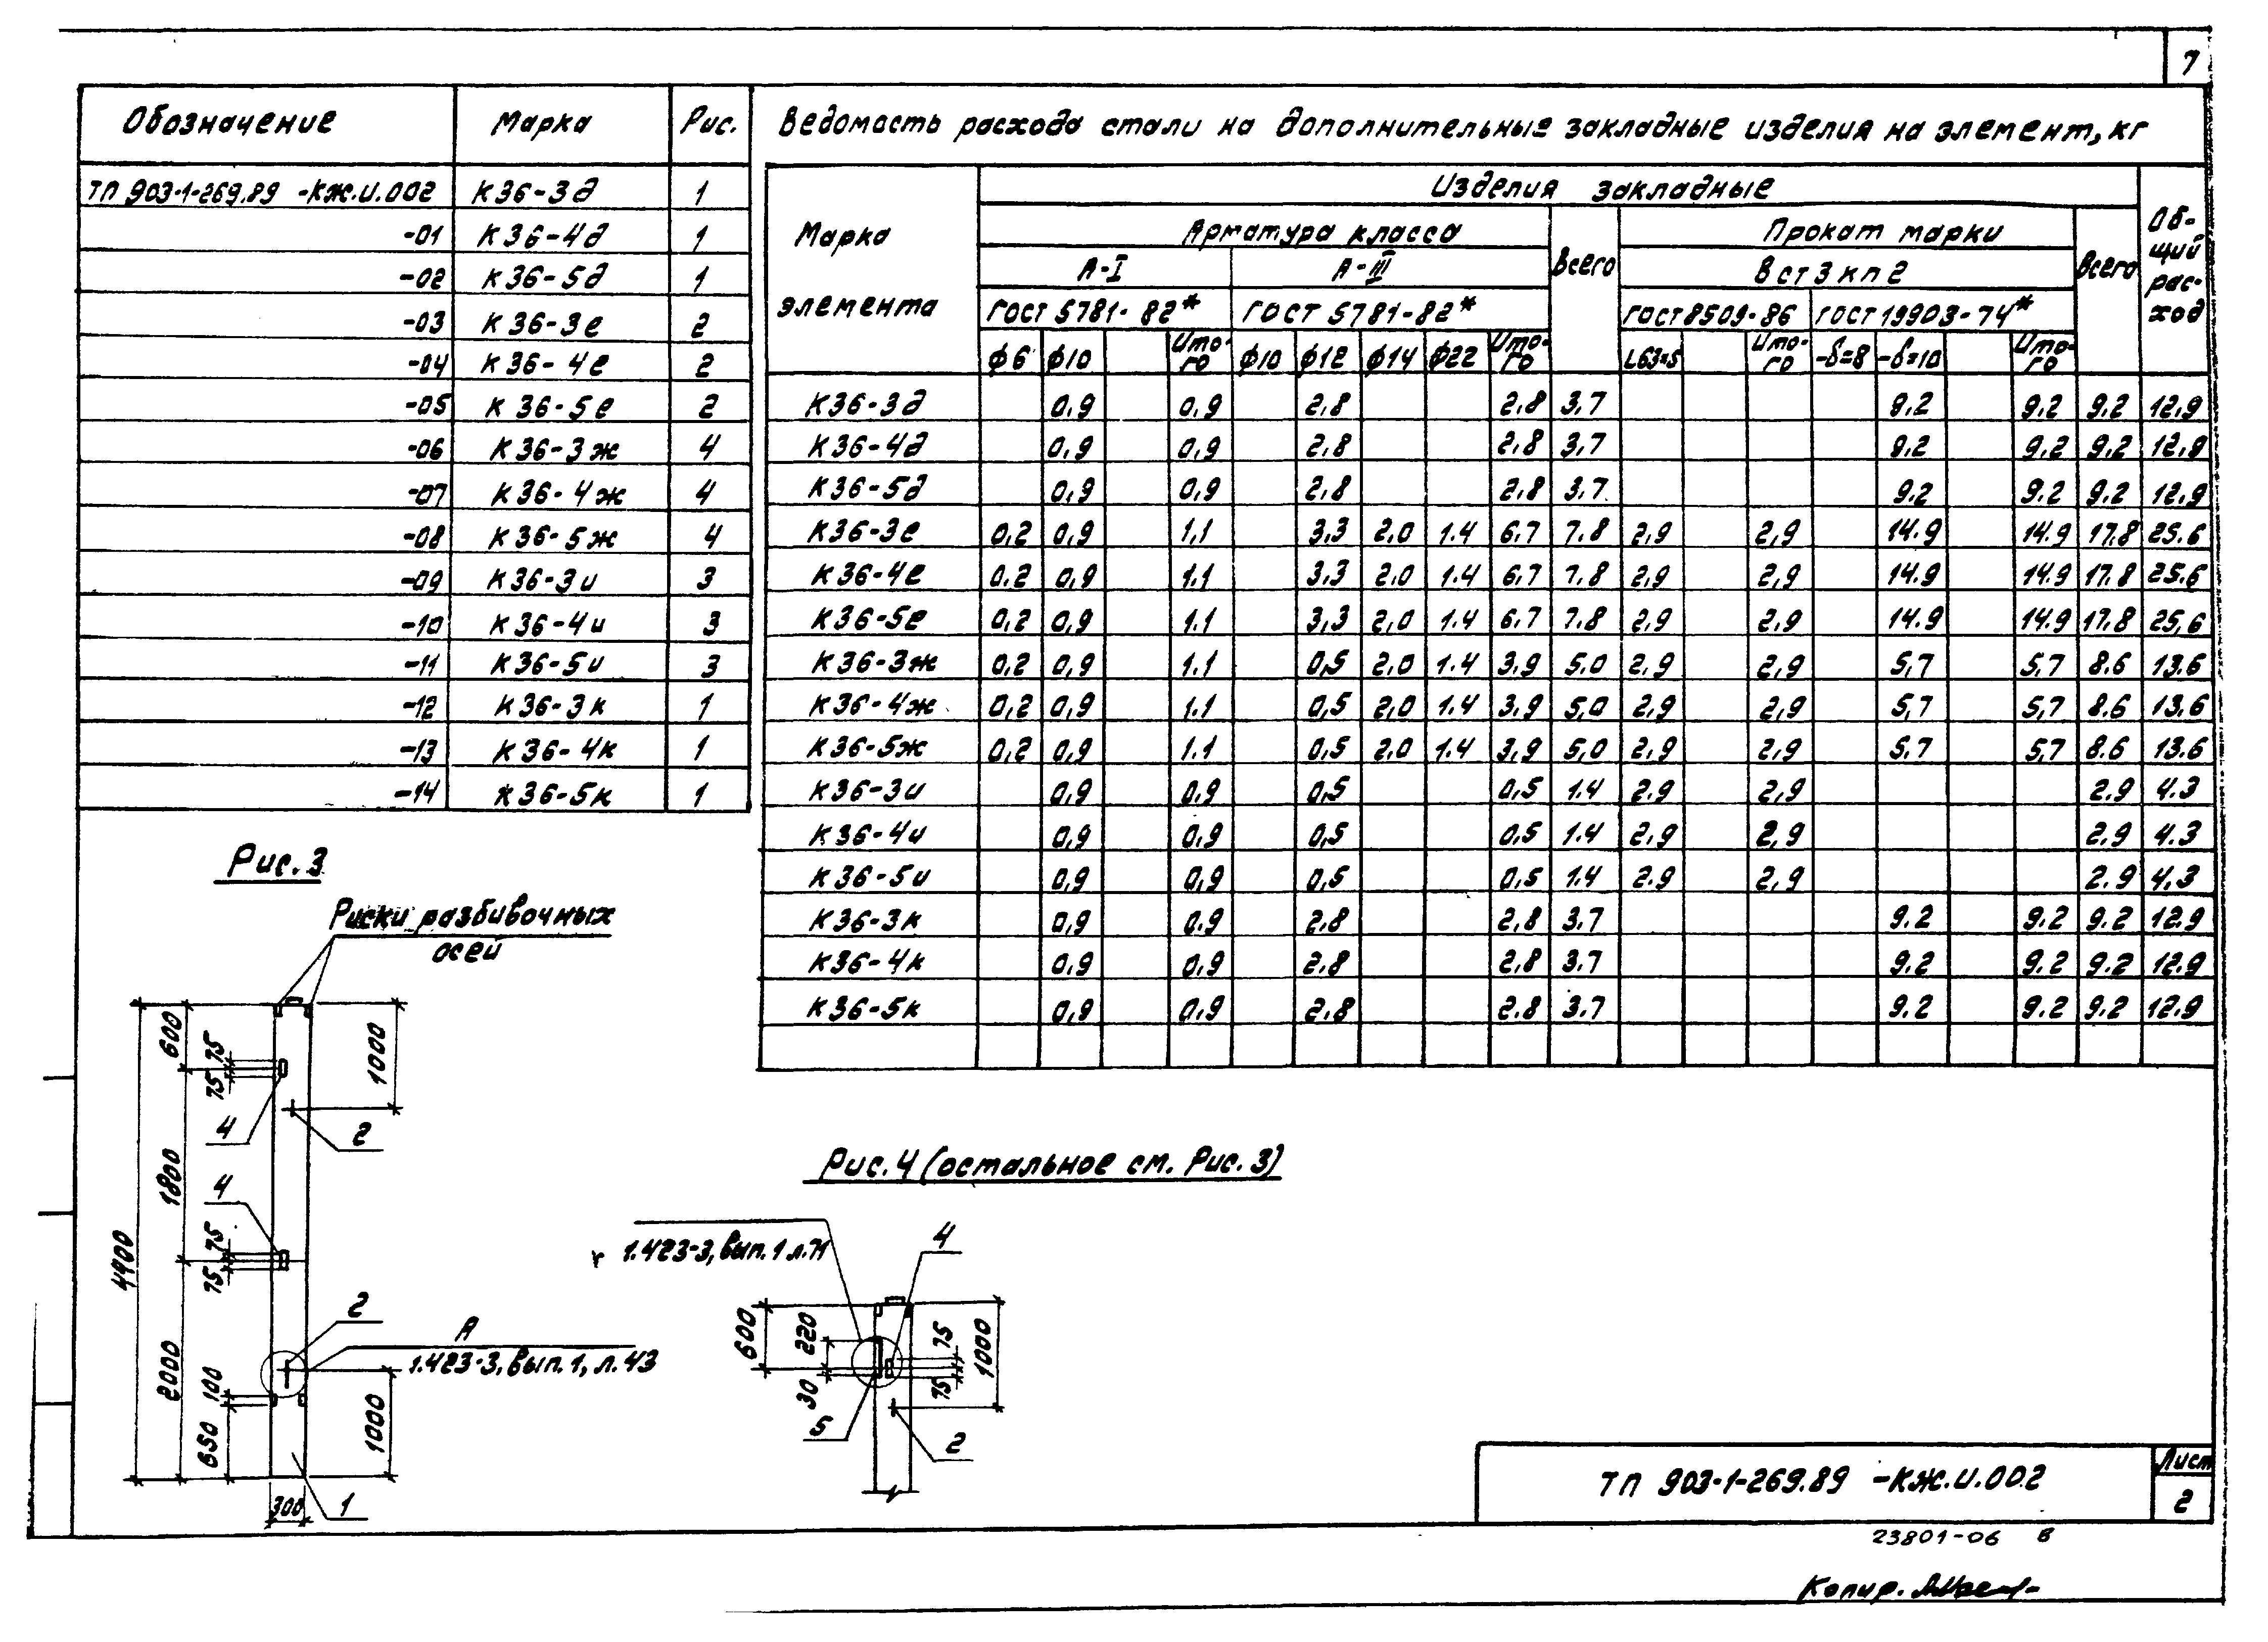 7
Обозначение Марка Рис.
ТП 903-1-269.89 -КЖ.И.002 К36-3д 1
-01 К36-4д 1
-02 К36-5д 1
-03 К36-3е 2
-04 К36-4е 2
-05 К36-5е 2
-06 К36-3ж 4
-07 К36-4ж 4
-08 К36-5ж 4
-09 К36-3и 3
-10 К36-4и 3
-11 К36-5и 3
-12 К36-3к 1
-13 К36-4к 1
-14 К36-5к 1
Ведомость расхода стали на дополнительные закладные изделия на элемент, кг
Марка элемента
Изделия закладные
Общий расход
Арматура класса Всего Прокат марки Всего
А-I А-III Вст3кп2
ГОСТ 5781-82* ГОСТ 5781-82* ГОСТ 8509-86 ГОСТ 19903-74*
ф6 ф10 Итого ф10 ф12 ф14 ф22 Итого L63×5 Итого -δ=8 -δ=10 Итого
К36-3д 0,9 0,9 2,8 2,8 3,7 9.2 9.2 9.2 12,9
К36-4д 0,9 0,9 2,8 2,8 3,7 9.2 9.2 9.2 12,9
К36-5д 0,9 0,9 2,8 2,8 3,7 9.2 9.2 9.2 12,9
К36-3е 0,2 0,9 1,1 3,3 2,0 1.4 6,7 7,8 2,9 2,9 14.9 14.9 17,8 25.6
К36-4е 0,2 0,9 1.1 3,3 2,0 1.4 6,7 7,8 2,9 2,9 14.9 14.9 17.8 25.6
К36-5е 0,2 0,9 1.1 3,3 2,0 1.4 6,7 7,8 2,9 2,9 14.9 14.9 17.8 25,6
К36-3ж 0,2 0,9 1.1 0,5 2,0 1.4 3,9 5,0 2,9 2,9 5,7 5,7 8.6 13.6
К36-4ж 0,2 0,9 1.1 0,5 2,0 1.4 3,9 5,0 2,9 2,9 5,7 5,7 8.6 13.6
К36-5ж 0,2 0,9 1.1 0,5 2,0 1.4 3,9 5,0 2,9 2,9 5.7 5,7 8.6 13.6
К36-3и 0,9 0,9 0,5 0,5 1.4 2.9 2,9 2.9 4.3
К36-4и 0,9 0,9 0,5 0,5 1.4 2,9 2,9 2.9 4.3
К36-5и 0,9 0,9 0,5 0,5 1.4 2.9 2,9 2.9 4,3
К36-3к 0,9 0,9 2,8 2,8 3.7 9.2 9.2 9.2 12,9
К36-4к 0,9 0,9 2,8 2,8 3.7 9.2 9.2 9.2 12.9
К36-5к 0,9 0,9 2,8 2.8 3.7 9.2 9.2 9.2 12.9
Рис. 3
Риски разбивочных
осей
600
75
75
1000
4
2
1800
4
75
75
4900
2
А
1.423-3, вып. 1, л. 43
2000
100
650
1000
300
1
Рис. 4 (остальное см. Рис. 3)
1.423-3, вып. 1 л. 71
4
600
220
30
75
75
1000
5
2
ТП 903-1-269.89 -КЖ.И.002
Лист
2
23801-06 8
Копир.